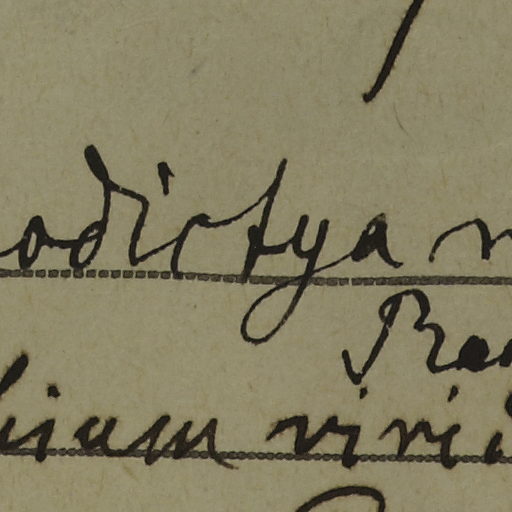 odictya n
Ra
lisam virid